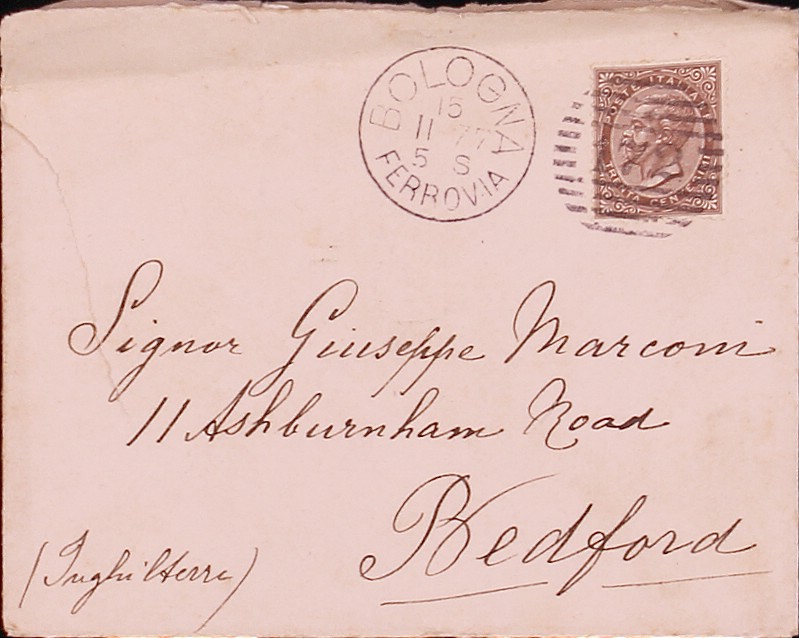 BOLOGNA
15
11 77
5 S
FERROVIA
POSTE ITALIANE
TRENTA CENTESIMI
Signor Giuseppe Marconi
11 Ashburnham Road
Bedford
(Inghilterra)